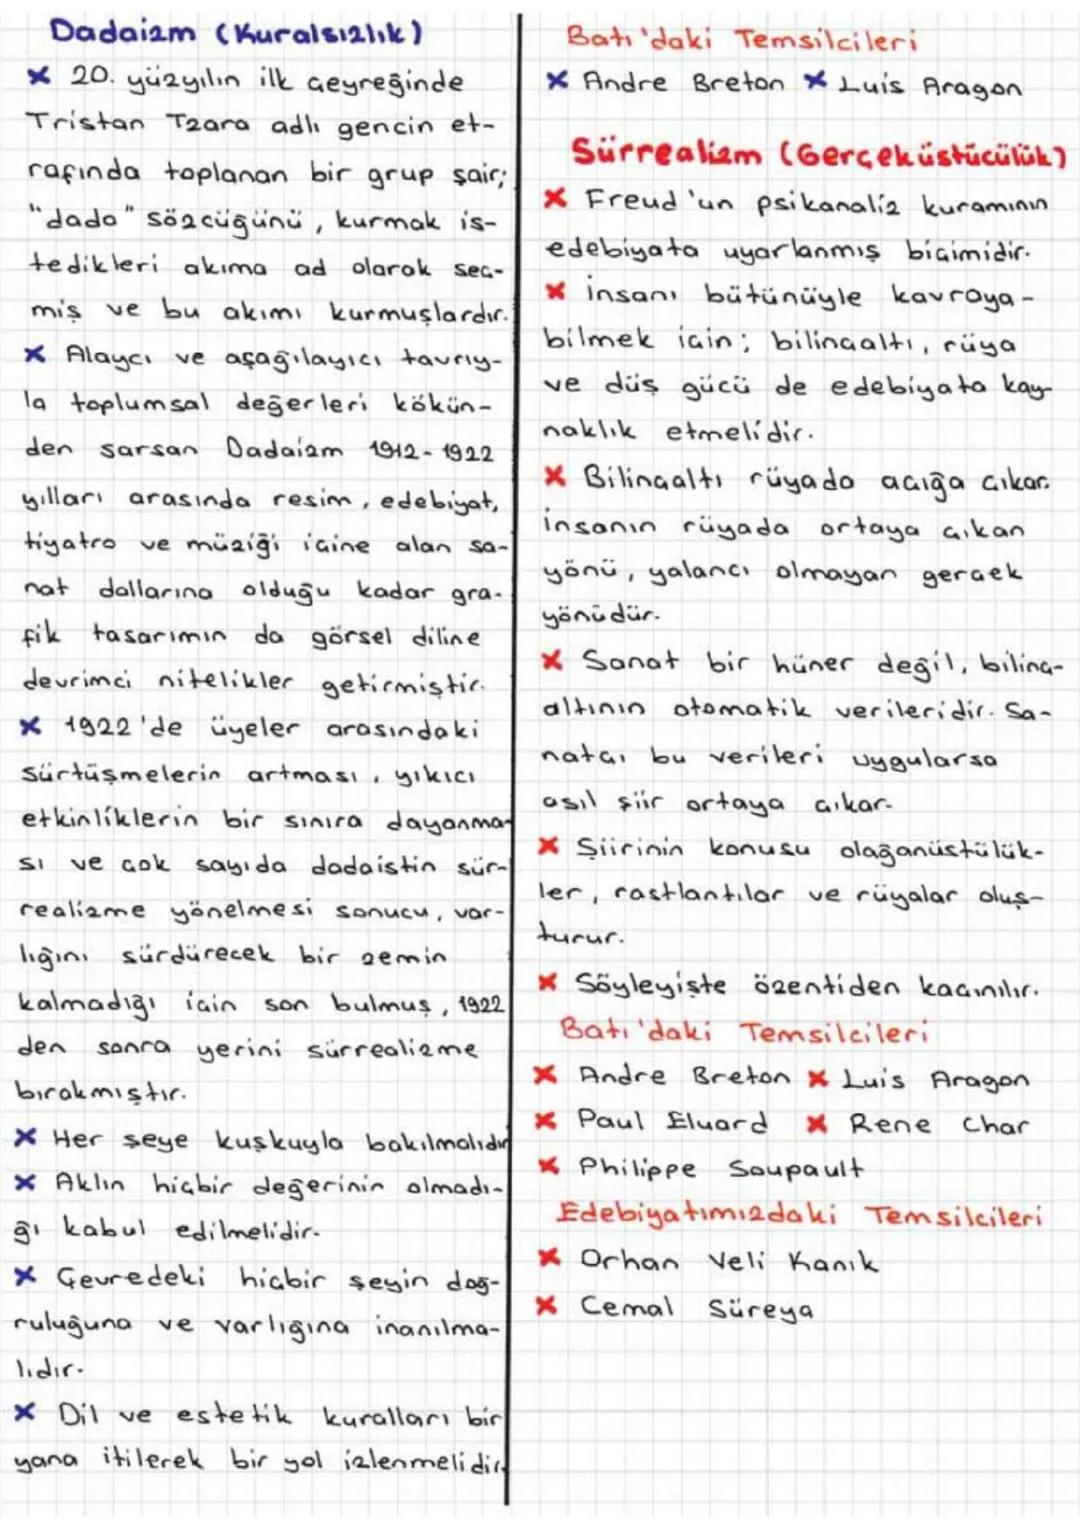 Dadaizm (Kuralsızlık)
x 20. yüzyılın ilk çeyreğinde
Tristan Tzara adlı gencin et-
rafında toplanan bir grup şair;
"dada" sözcüğünü, kurmak is-
tedikleri akıma ad olarak seç-
miş ve bu akımı kurmuşlardır.
x Alaycı ve aşağılayıcı tavrıy-
la toplumsal değerleri kökün-
den sarsan Dadaizm 1912-1922
yılları arasında resim, edebiyat,
tiyatro ve müziği içine alan sa-
nat dallarına olduğu kadar gra-
fik tasarımın da görsel diline
devrimci nitelikler getirmiştir.
x 1922'de üyeler arasındaki
sürtüşmelerin artması, yıkıcı
etkinliklerin bir sınıra dayanma-
sı ve çok sayıda dadaistin sür-
realizme yönelmesi sonucu, var-
lığını sürdürecek bir zemin
kalmadığı için son bulmuş, 1922
den sonra yerini sürrealizme
bırakmıştır.
x Her şeye kuşkuyla bakılmalıdır
x Aklın hiçbir değerinin olmadı-
ğı kabul edilmelidir.
x Çevredeki hiçbir şeyin doğ-
ruluğuna ve varlığına inanılma-
lıdır.
x Dil ve estetik kuralları bir
yana itilerek bir yol izlenmelidir.
Batı'daki Temsilcileri
x Andre Breton x Luis Aragon
Sürrealizm (Gerçeküstücülük)
x Freud'un psikanaliz kuramının
edebiyata uyarlanmış biçimidir.
x İnsanı bütünüyle kavraya-
bilmek için; bilinçaltı, rüya
ve düş gücü de edebiyata kay-
naklık etmelidir.
x Bilinçaltı rüyada açığa çıkar.
İnsanın rüyada ortaya çıkan
yönü, yalancı olmayan gerçek
yönüdür.
x Sanat bir hüner değil, bilinç-
altının otomatik verileridir. Sa-
natçı bu verileri uygularsa
asıl şiir ortaya çıkar.
x Şiirinin konusu olağanüstülük-
ler, rastlantılar ve rüyalar oluş-
turur.
x Söyleyişte özentiden kaçınılır.
Batı'daki Temsilcileri
x Andre Breton x Luis Aragon
x Paul Eluard x Rene Char
x Philippe Soupault
Edebiyatımızdaki Temsilcileri
x Orhan Veli Kanık
x Cemal Süreya